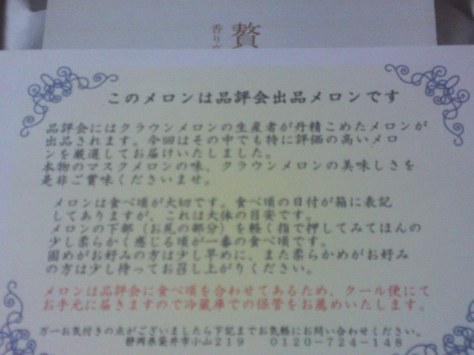 贅
香り
このメロンは品評会出品メロンです
品評会にはクラウンメロンの生産者が丹精こめたメロンが
出品されます。今回はその中でも特に評価の高いメロ
ンを厳選してお届けいたしました。
本物のマスクメロンの味、クラウンメロンの美味しさを
是非ご賞味くださいませ。
メロンは食べ頃が大切です。食べ頃の日付が箱に表記
してありますが、これは大体の目安です。
メロンの下部（お尻の部分）を軽く指で押してみてほんの
少し柔らかく感じる頃が一番の食べ頃です。
固めがお好みの方は少し早めに、また柔らかめがお好み
の方は少し待ってお召し上がりください。
メロンは品評会に食べ頃を合わせてあるため、クール便にて
お手元に届きますので冷蔵庫での保管をお薦めいたします。
万一お気付きの点がございましたら下記までお気軽にお問い合わせください。
静岡県袋井市小山219 0120-724-148